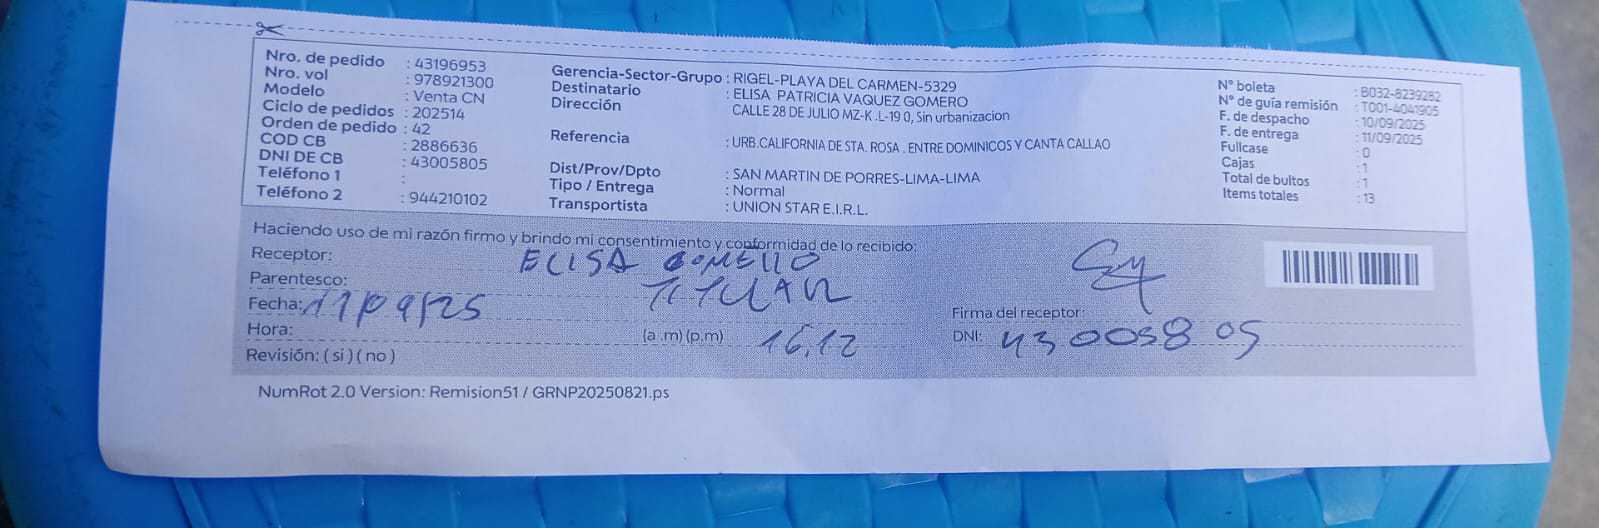 Nro. de pedido : 43196953
Nro. vol : 978921300
Modelo : Venta CN
Ciclo de pedidos : 202514
Orden de pedido : 42
COD CB : 2886636
DNI DE CB : 43005805
Teléfono 1 :
Teléfono 2 : 944210102
Gerencia-Sector-Grupo : RIGEL-PLAYA DEL CARMEN-5329
Destinatario : ELISA PATRICIA VAQUEZ GOMERO
Dirección CALLE 28 DE JULIO MZ-K .L-19 0, Sin urbanizacion
Referencia : URB.CALIFORNIA DE STA. ROSA . ENTRE DOMINICOS Y CANTA CALLAO
Dist/Prov/Dpto : SAN MARTIN DE PORRES-LIMA-LIMA
Tipo / Entrega : Normal
Transportista : UNION STAR E.I.R.L.
N° boleta : B032-8239282
N° de guía remisión : T001-4041905
F. de despacho : 10/09/2025
F. de entrega : 11/09/2025
Fullcase : 0
Cajas : 1
Total de bultos : 1
Items totales : 13
Haciendo uso de mi razón firmo y brindo mi consentimiento y conformidad de lo recibido:
Receptor: ELISA GOMERO
Parentesco: TITULAR
Fecha: 11/09/25
Hora: (a .m) (p.m) 16.12
Revisión: ( si ) ( no )
Firma del receptor:
DNI: 43005805
NumRot 2.0 Version: Remision51 / GRNP20250821.ps